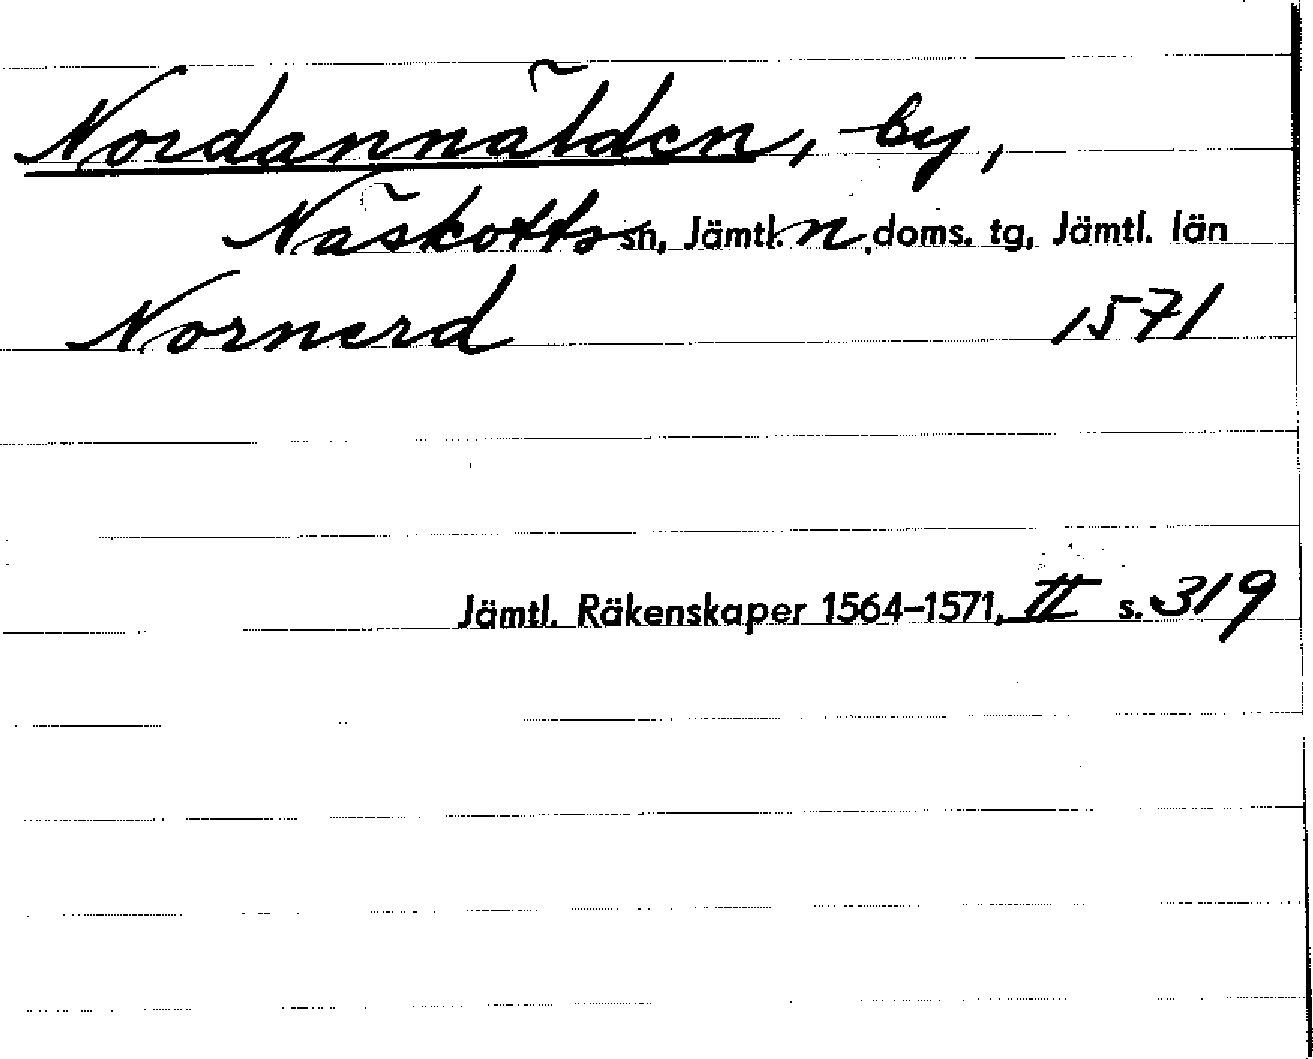 Nordannälden, by,
Näskotts sn, Jämtl. n. doms. tg, Jämtl. län
Nornerd 1571
Jämtl. Räkenskaper 1564–1571, II s. 319